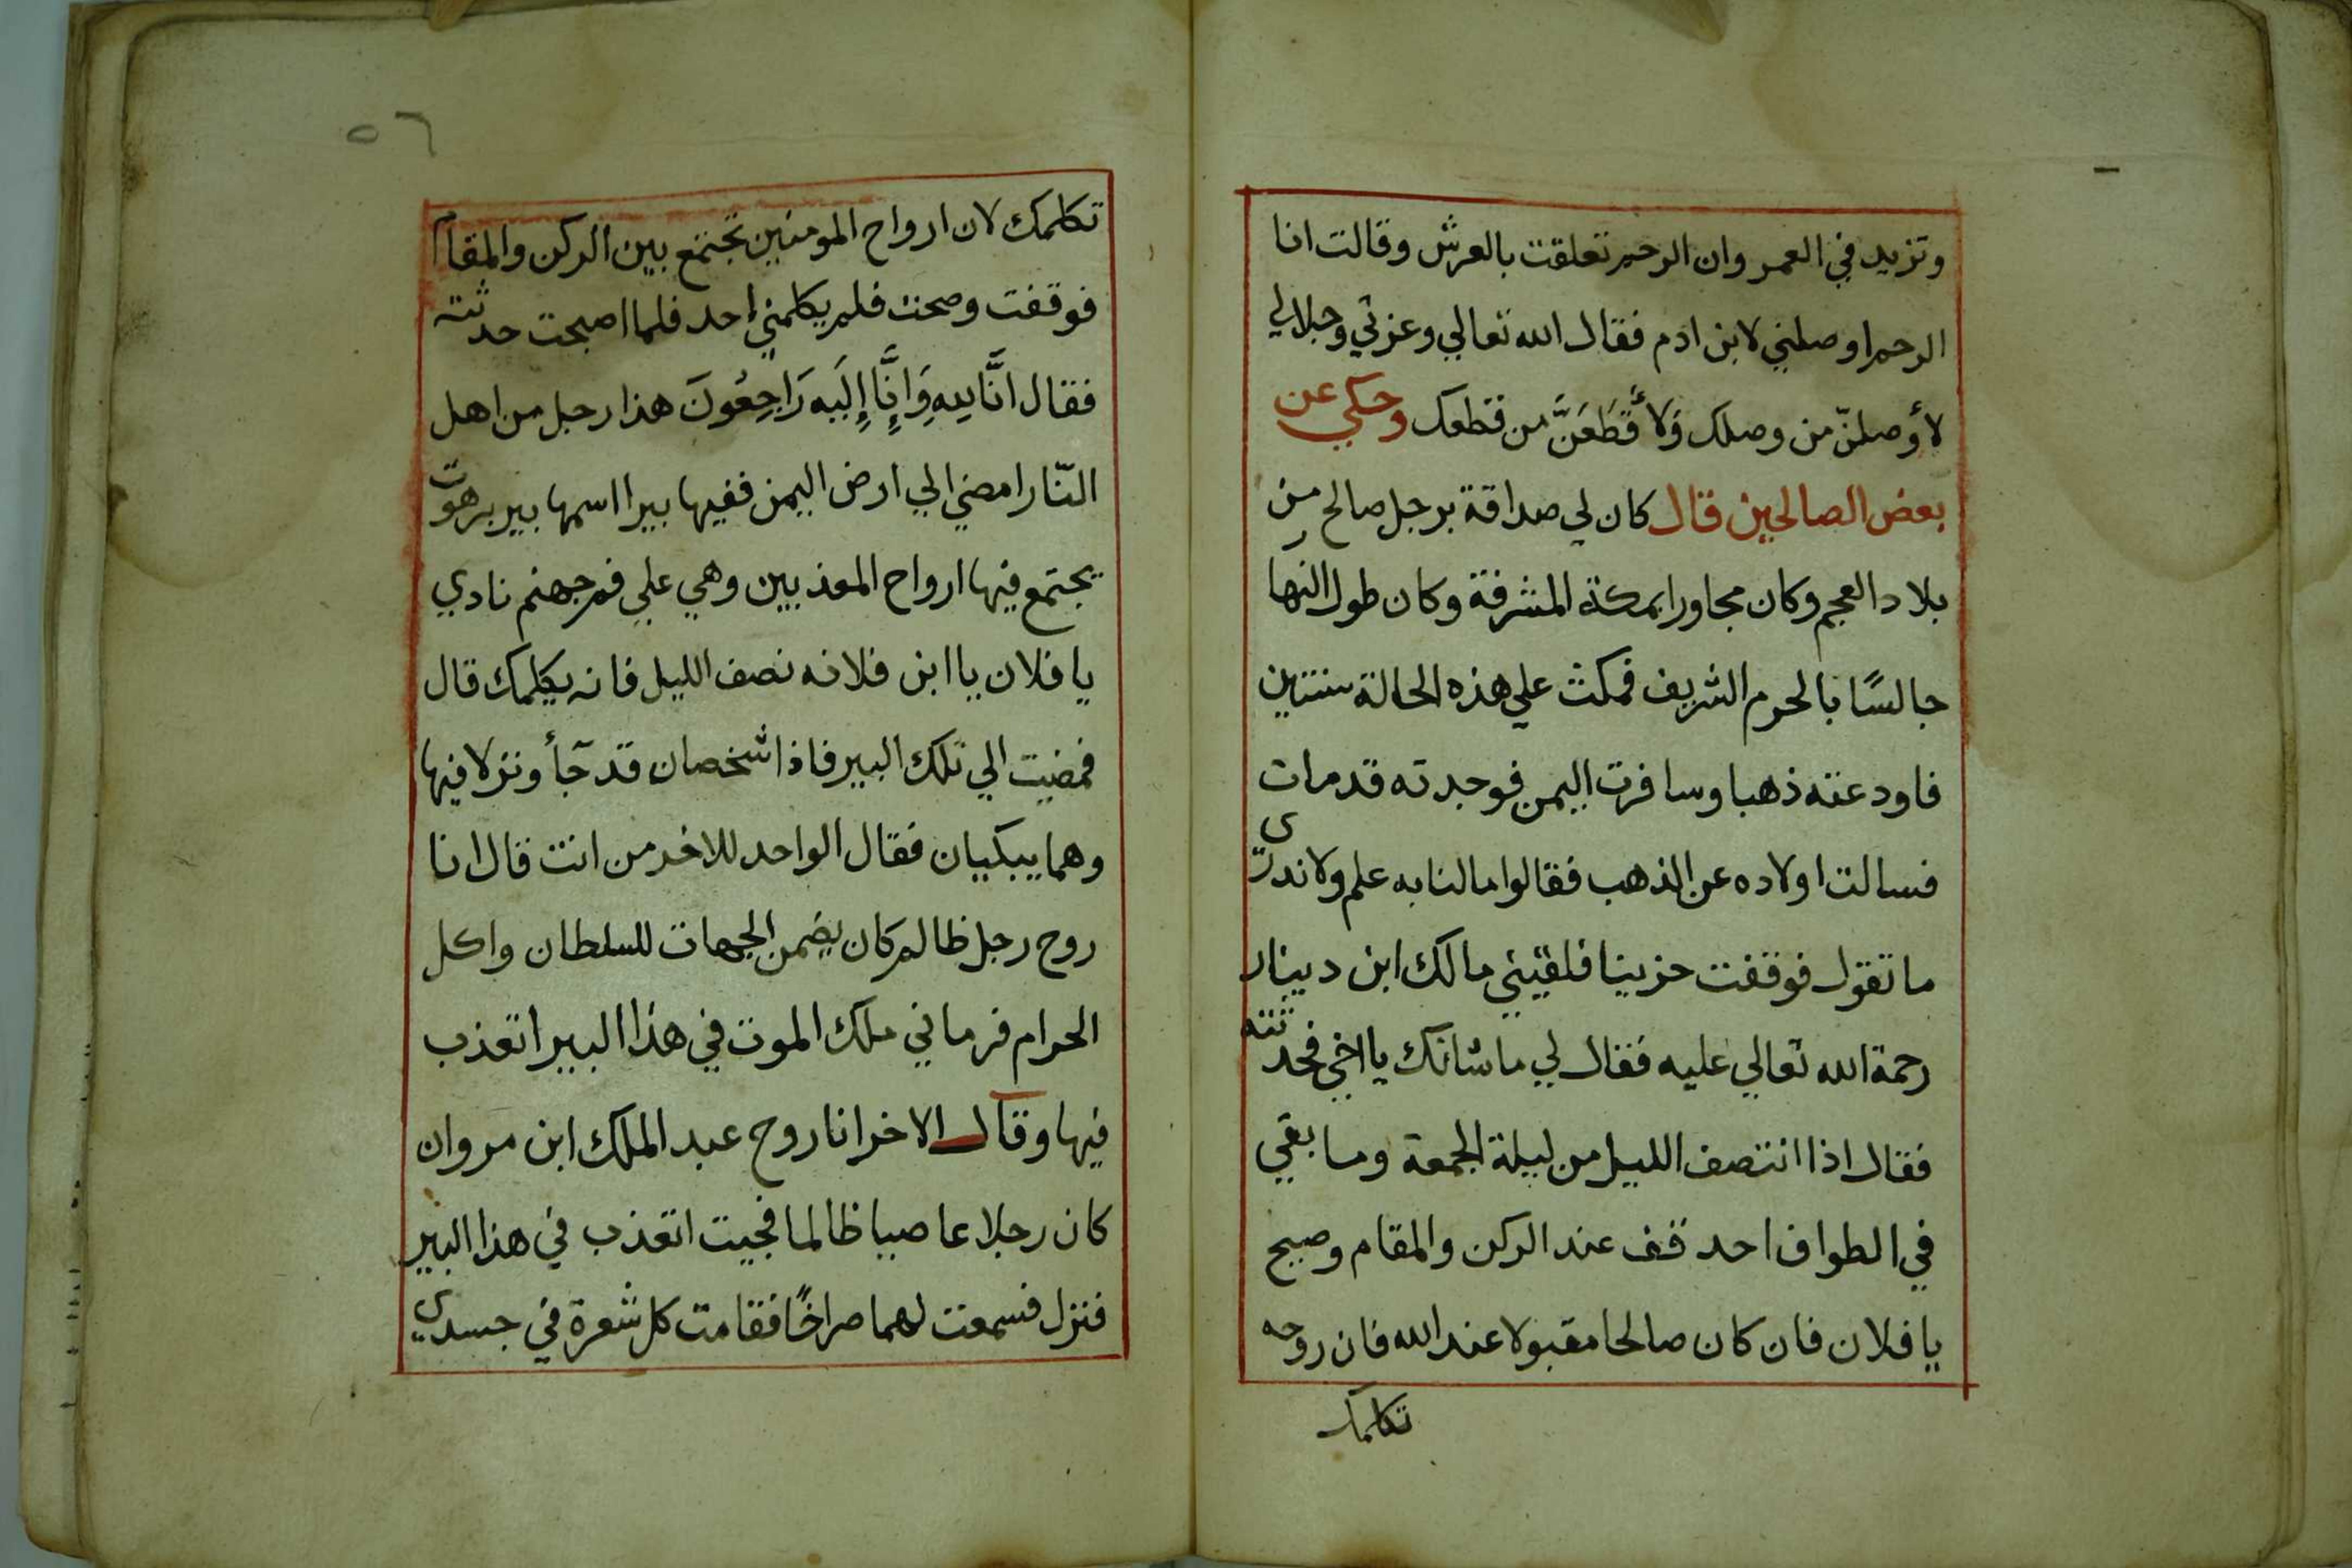 وتزيد في العمر وان الرحم تعلقت بالعرش وقالت انا
الرحم اوصلني لابن ادم فقال الله تعالي وعزتي وجلالي
لأوصلنّ من وصلك وَلأَقطَعَنَّ من قطعك وحكي عن
بعض الصالحين قال كان لي صداقة برجل صالح من
بلاد العجم وكان مجاورا بمكة المشرفة وكان طول النهار
جالسًا بالحرم الشريف فمكث علي هذه الحالة سنتين
فاودعته ذهبا وسافرت اليمن فوجدته قد مات
فسالت اولاده عن الذهب فقالوا ما لنا به علم ولا ندري
ما تقول فوقفت حزينا فلقيني مالك ابن دينار
رحمة الله تعالي عليه فقال لي ما شانك يا اخي فحدثته
فقال اذا انتصف الليل من ليلة الجمعة وما بقي
في الطواف احد قف عند الركن والمقام وصيح
يا فلان فان كان صالحا مقبولا عند الله فان روحه
تكلمك
٥٦
تكلمك لان ارواح المومنين تجتمع بين الركن والمقام
فوقفت وصحت فلم يكلمني احد فلما اصبحت حدثته
فقال انَّا لِلهِ وَانَّا إِلَيه رَاجِعُونَ هذا رجل من اهل
النّار امضي الي ارض اليمن ففيها بيرا اسمها بير برهوت
يجتمع فيها ارواح المعذبين وهي علي فم جهنم نادي
يا فلان يا ابن فلانه نصف الليل فانه يكلمك قال
فمضيت الي تلك البير فاذا شخصان قد جآأ ونزلا فيها
وهما يبكيان فقال الواحد للاخر من انت قال انا
روح رجل ظالم كان يضمن الجهات للسلطان واكل
الحرام فرماني ملك الموت في هذا البير اتعذب
فيها وقال الاخر انا روح عبد الملك ابن مروان
كان رجلا عاصيا ظالما فجيت اتعذب في هذا البير
فنزل فسمعت لهما صراخًا فقامت كل شعرة في جسدي